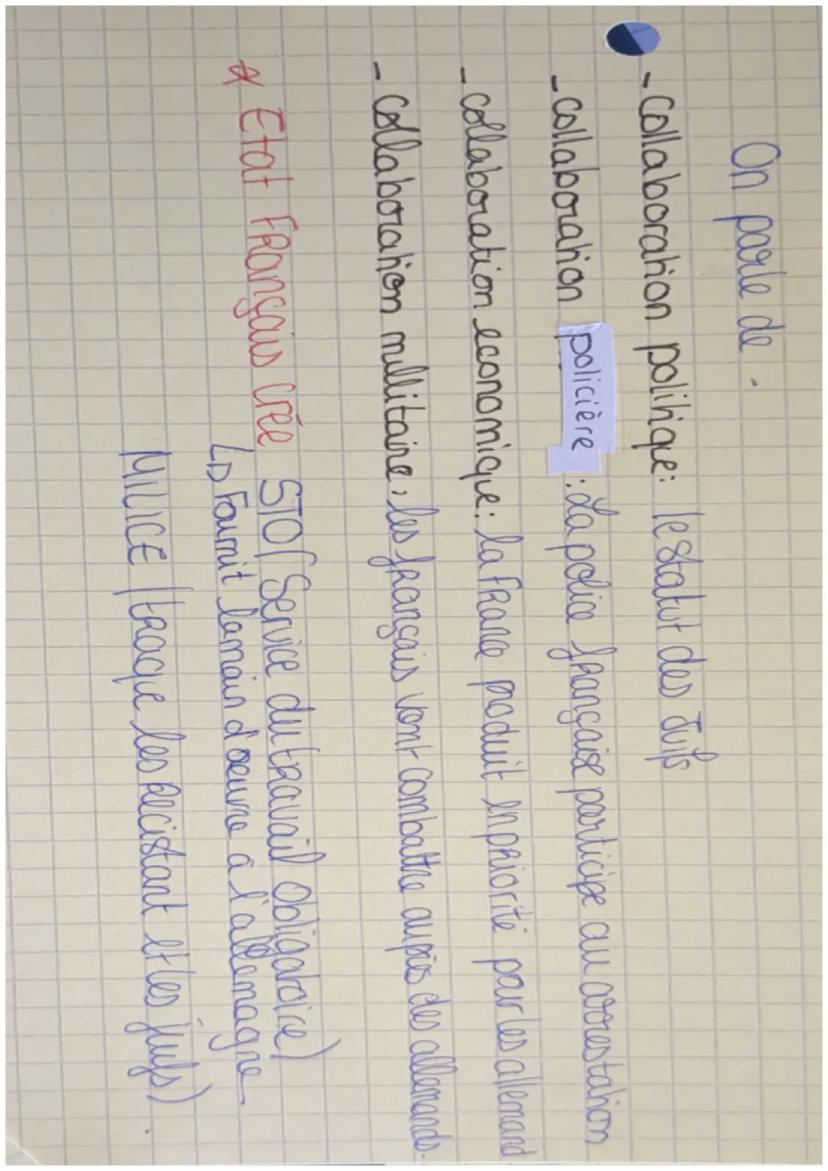 On parle de.
- Collaboration politique: le statut des Juifs
- collaboration policière : La police française participe au arrestation
- collaboration economique: la france produit en priorité par les allemand
- Collaboration millitaire: les français vont combattre auprès des allemands.
* Etat Français Crée STO (Service du travail Obligatoire)
↳ Fournit la main d'oeuvre à l'allemagne
MILICE (traque les récistant et les juifs).